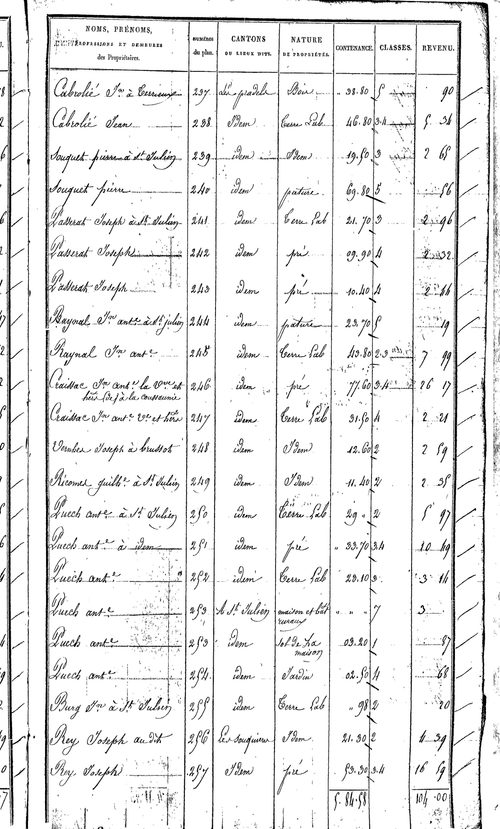 NOMS, PRÉNOMS, PROFESSIONS ET DEMEURES des Propriétaires. NUMÉROS du plan. CANTONS OU LIEUX DITS. NATURE DE PROPRIÉTÉS. CONTENANCE. CLASSES. REVENU.
Cabrolié Jn à 237 Le pradel Bois 38.80 5 90
Cabrolié Jean 238 Idem Terre Lab 46.80 3.4 5 38
Souquet pierre à St Julien 239 idem Idem 19.50 3 2 65
Souquet pierre 240 idem pature 69.80 5 56
Passerat Joseph à St Julien 241 idem Terre Lab 21.70 3 2 96
Passerat Joseph 242 idem pré 09.90 4 2 32
Passerat Joseph 243 idem pré 10.40 4 2 44
Raynal Jn ante à St julien 244 idem pature 23.70 5 19
Raynal Jn ante 245 idem Terre Lab 43.80 2.3 7 99
Craissac Jn ante la Vve et
hers à la coussaunié 246 idem pré 77.60 3.4 26 17
Craissac Jn ante Vve et hers 247 idem Terre Lab 31.50 4 2 21
Vernhes Joseph à brussot 248 idem Idem 12.60 2 2 59
Ricomes guilhe à St Julien 249 idem Idem 11.40 2 2 35
Puech ante à St Julien 250 idem Terre Lab 29 " 2 5 97
Puech ante à idem 251 idem pré " 33.70 3.4 10 49
Puech ante 252 idem Terre Lab 23.10 3 3 14
Puech ante 253 A St Julien maison et bât
ruraux " " " 7 3
Puech ante 253 idem sol de la
maison 03.20 1 87
Puech ante 254 idem Jardin 02.50 4 68
Burg Jn à St Julien 255 idem Terre Lab " 98 2 20
Rey Joseph au dit 256 Le souquier Idem 21.30 2 4 39
Rey Joseph 257 Idem pré 53.30 3.4 16 59
5.84.58 104.00